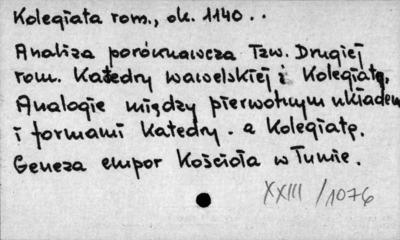 Kolegiata rom., ok. 1140..
Analiza porównawcza Tzw. Drugiej
rom. Katedry wawelskiej i Kolegiatę.
Analogie między pierwotnym układem
i formami Katedry. a Kolegiatę.
Geneza empor Kościoła w Tumie.
XXIII/1076